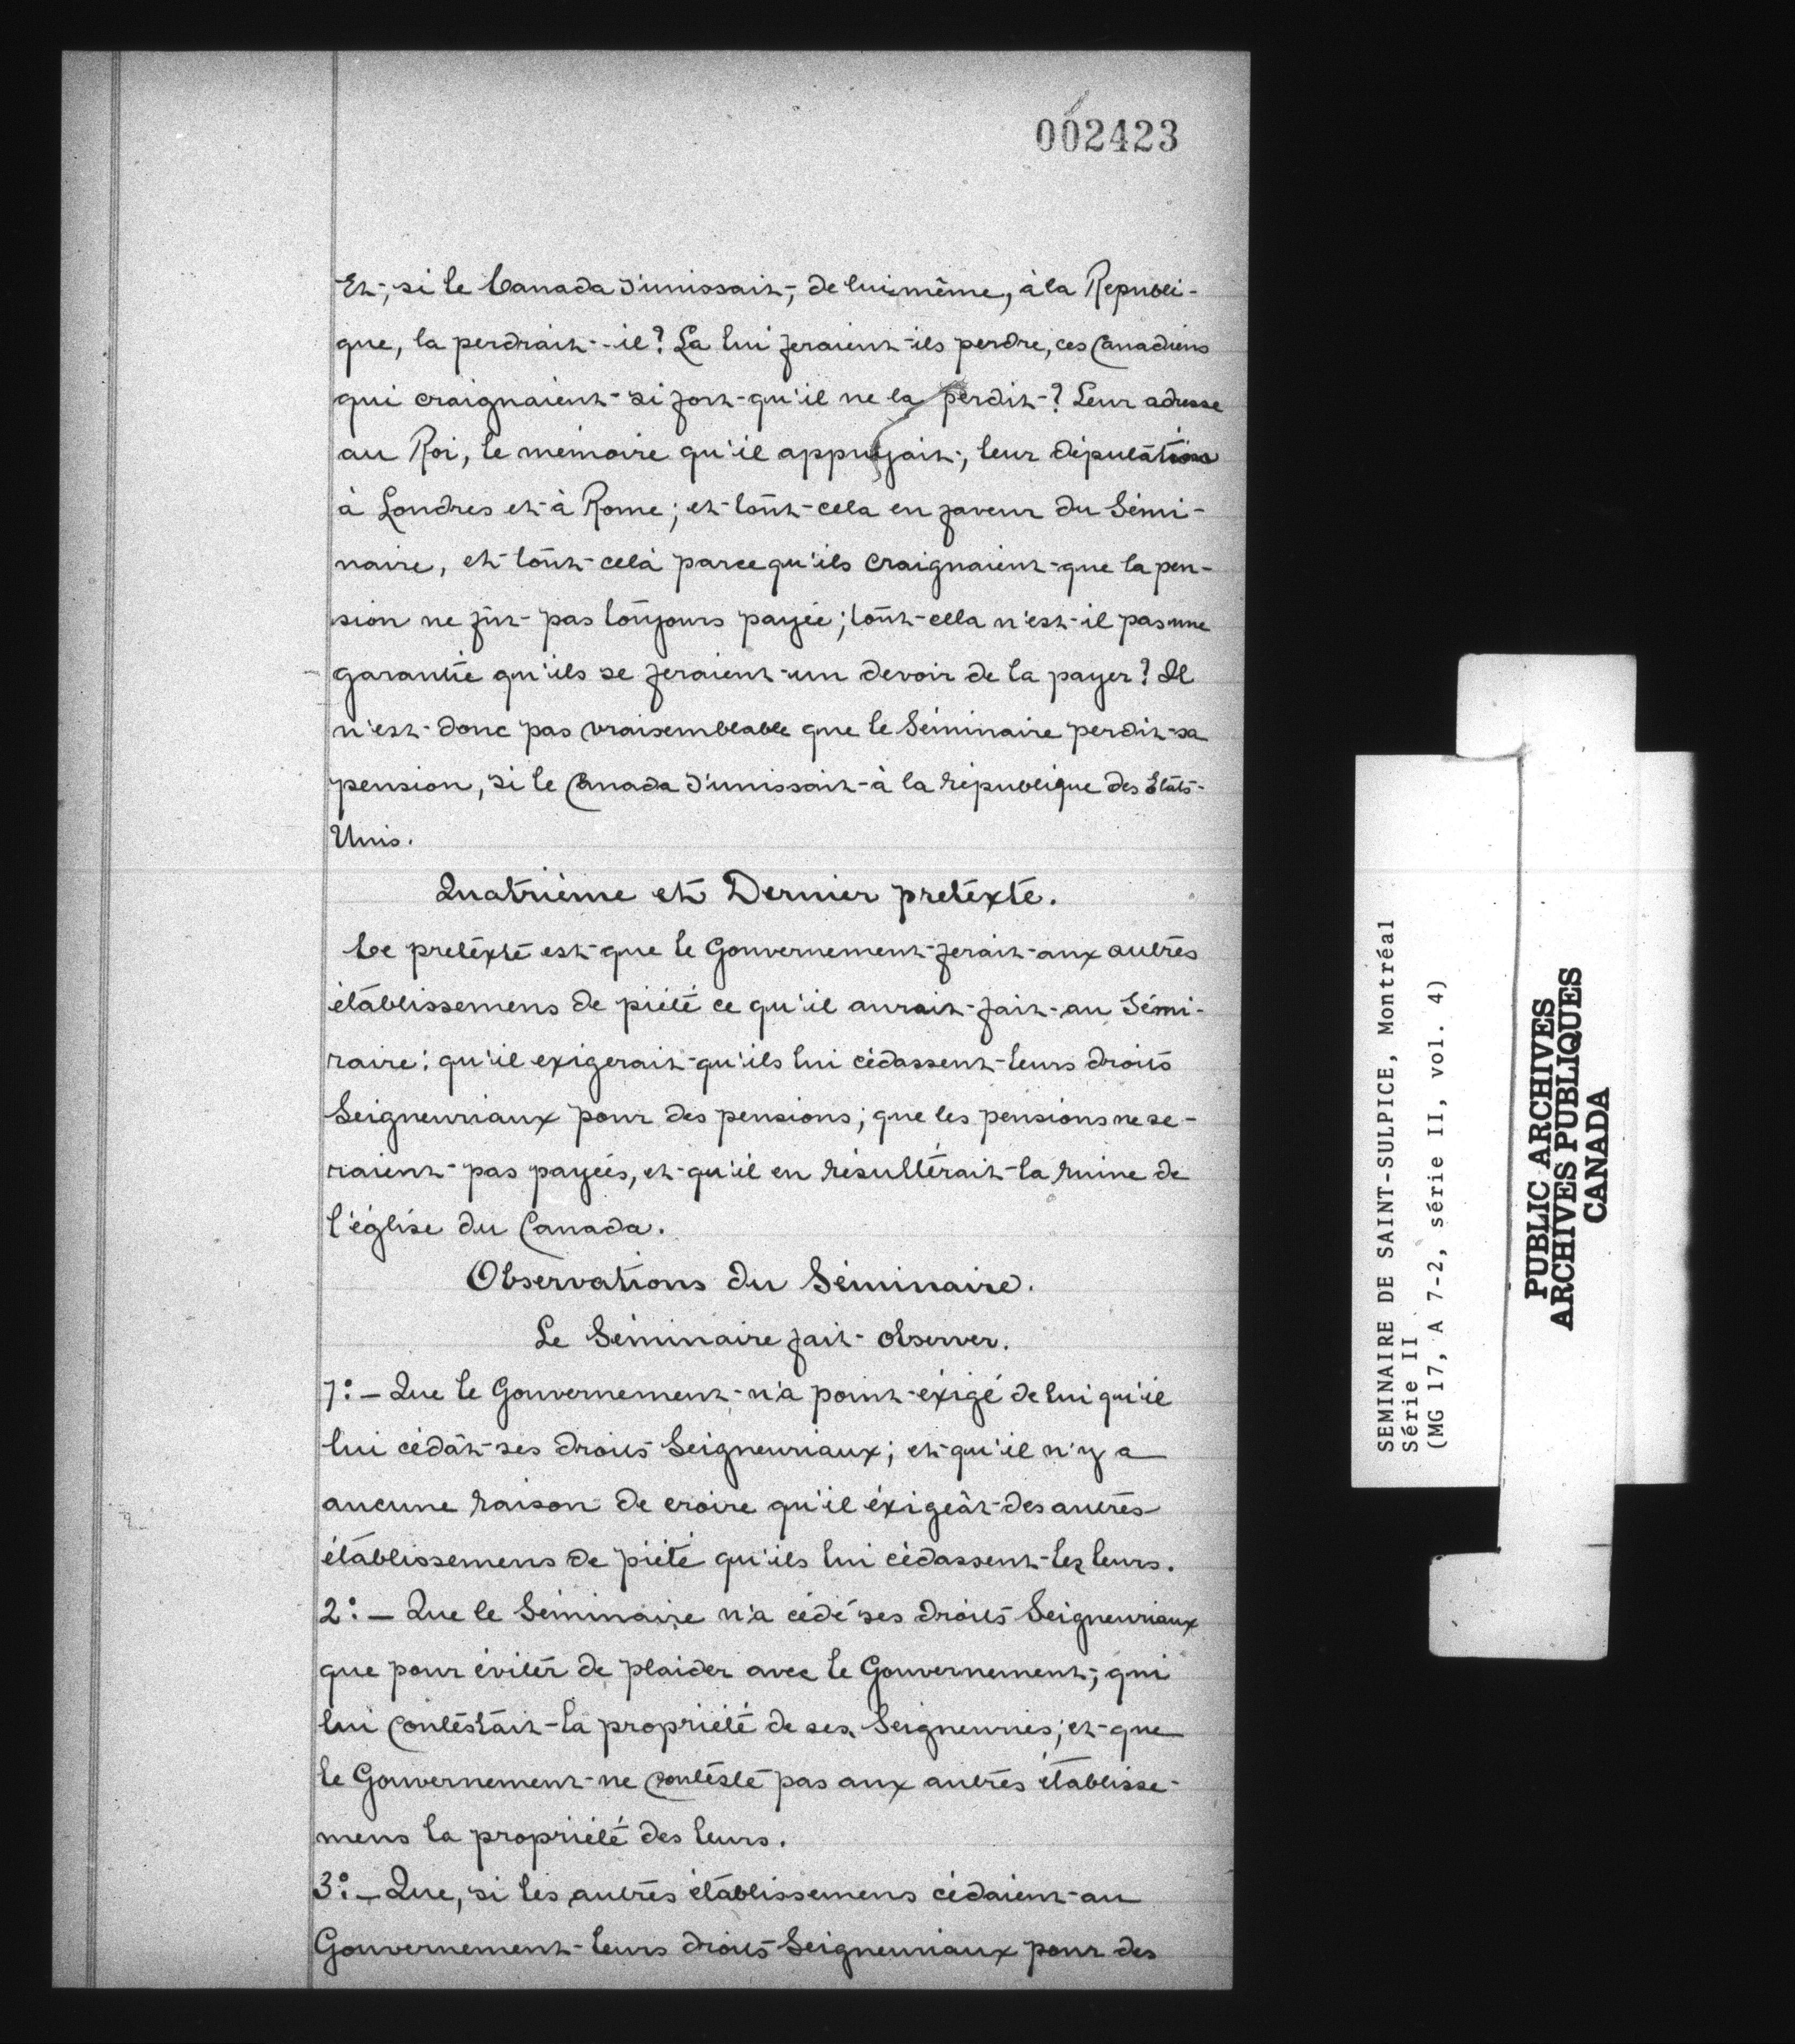 002423
Et, si le Canada s'unissait, de lui même, à la Républi-
que, la perdrait-il? La lui feraient-ils perdre, ces Canadiens
qui craignaient si fort qu'il ne la perdit? Leur adresse
au Roi, le mémoire qu'il appuyait, leur députation
à Londres et à Rome; et tout cela en faveur du Sémi-
naire, et tout celà parcequ'ils craignaient que la pen-
sion ne fût pas toujours payée; tout cella n'est-il pas une
garantie qu'ils se feraient un devoir de la payer? Il
n'est donc pas vraisembleable que le Séminaire perdit sa
pension, si le Canada s'unissait à la république des États-
Unis.
Quatrième et Dernier pretéxte.
Ce pretéxte est que le Gouvernement ferait aux autres
établissemens de piété ce qu'il aurait fait au Sémi-
raire: qu'il exigerait qu'ils lui cédassent leurs droits
Seigneuriaux pour des pensions; que les pensions ne se-
raient pas payées, et qu'il en résulterait la ruine de
l'église du Canada.
Observations du Séminaire.
Le Séminaire fait observer.
1º.— Que le Gouvernement n'a point éxigé de lui qu'il
lui cédât ses droits Seigneuriaux; et qu'il n'y a
aucune raison de croire qu'il éxigeât des autres
établissemens de piété qu'ils lui cédassent les leurs.
2º.— Que le Séminaire n'a cédé ses droits Seigneuriaux
que pour éviter de plaider avec le Gouvernement, qui
lui contestait la propriété de ses Seigneuries; et que
le Gouvernement ne conteste pas aux autres établisse-
mens la propriété des leurs.
3º.— Que, si les autres établissemens cédaient au
Gouvernement leurs droits Seigneuriaux pour des
SEMINAIRE DE SAINT-SULPICE, Montréal
Série II
(MG 17, A 7-2, série II, vol. 4)
PUBLIC ARCHIVES
ARCHIVES PUBLIQUES
CANADA